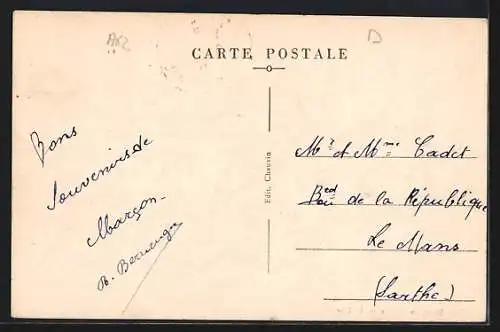 CARTE POSTALE
Bons
Souvenirs de
Marçon
Edit. Chauvin
Mr et Mme Cadet
de la République
Le Mans
(Sarthe)